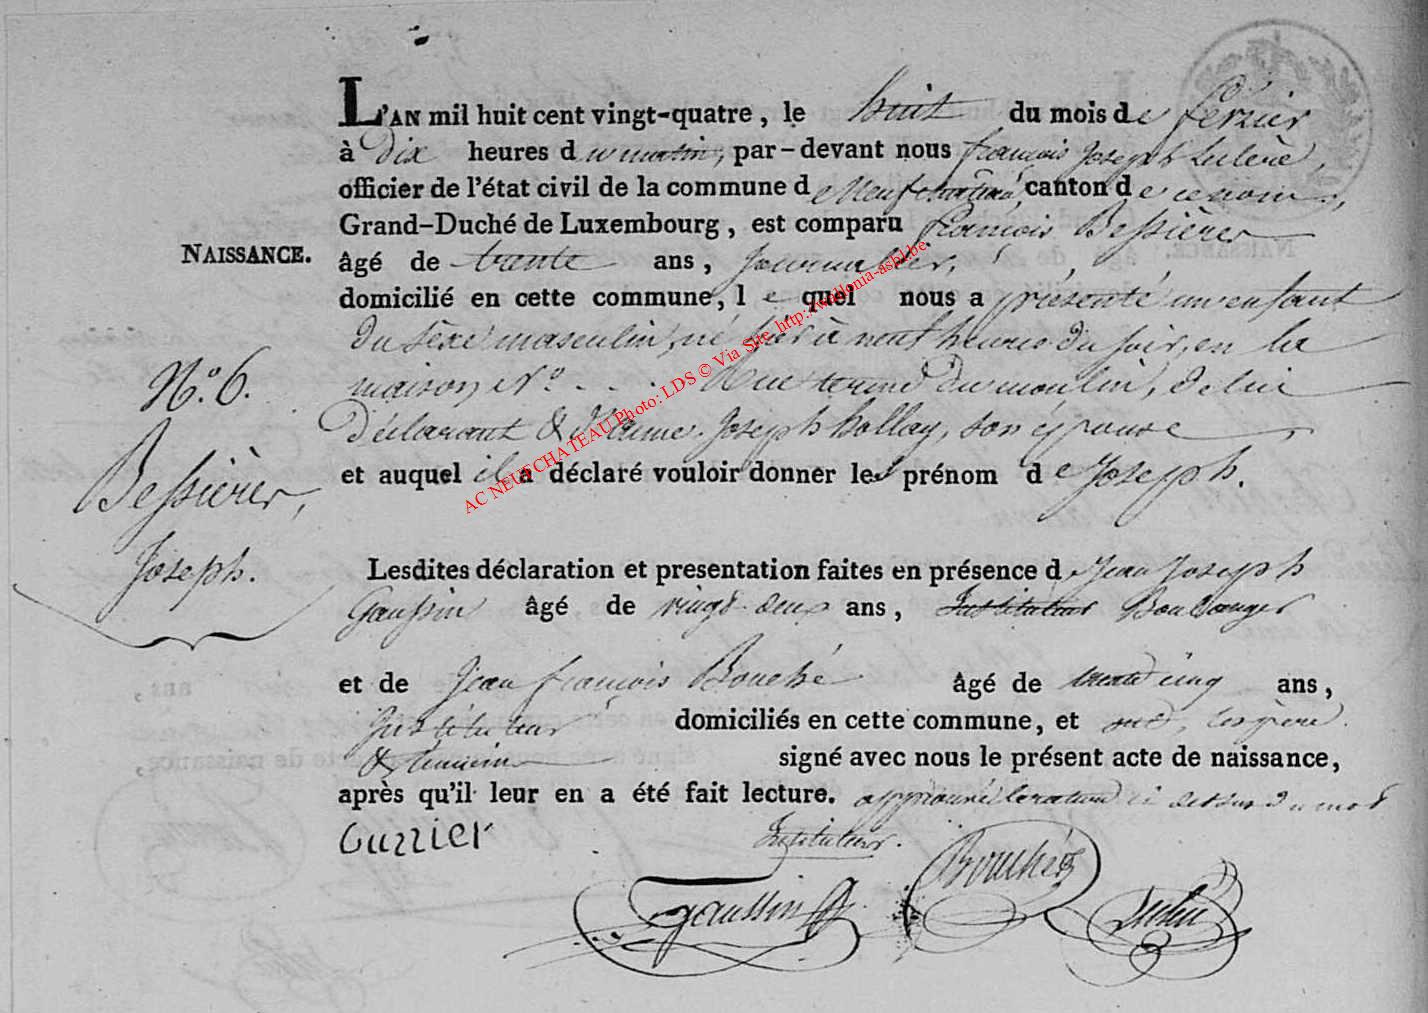 L'AN mil huit cent vingt-quatre, le huit du mois de février
à dix heures du matin, par-devant nous françois Joseph
officier de l'état civil de la commune de Neufchâteau, canton de ce nom,
Grand-Duché de Luxembourg, est comparu François Bessières
NAISSANCE.
âgé de trente ans, Journalier,
domicilié en cette commune, lequel nous a présenté un enfant
du sèxe masculin, né hier à neuf heures du soir, en la
N.° 6.
maison N.° . . . Rue du moulin, de lui
déclarant & Joseph hollay, son épouse
Bessières,
et auquel il a déclaré vouloir donner les prénom de Joseph.
Joseph.
Lesdites déclaration et presentation faites en présence de Jean Joseph
Gaussin âgé de vingt deux ans, Instituteur Boulanger
et de Jean françois Bouché âgé de cinq ans,
Instituteur domiciliés en cette commune, et les père
& témoins signé avec nous le présent acte de naissance,
après qu'il leur en a été fait lecture. approuvé la rature ci dessus du mot
Instituteur.
Bouché
gaussin
AC NEUFCHATEAU Photo: LDS © Via Site http://wallonia-asbl.be